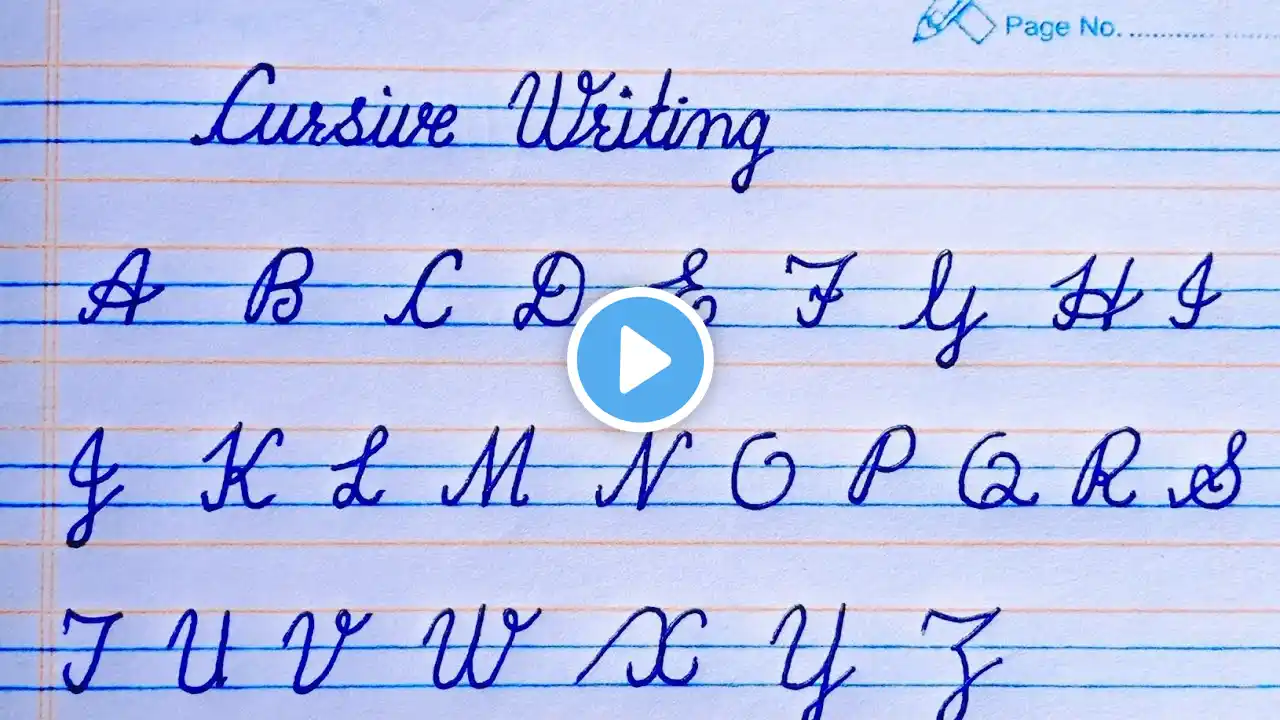 Page No. ....................
Cursive Writing
A B C D E F G H I
J K L M N O P Q R S
T U V W X Y Z